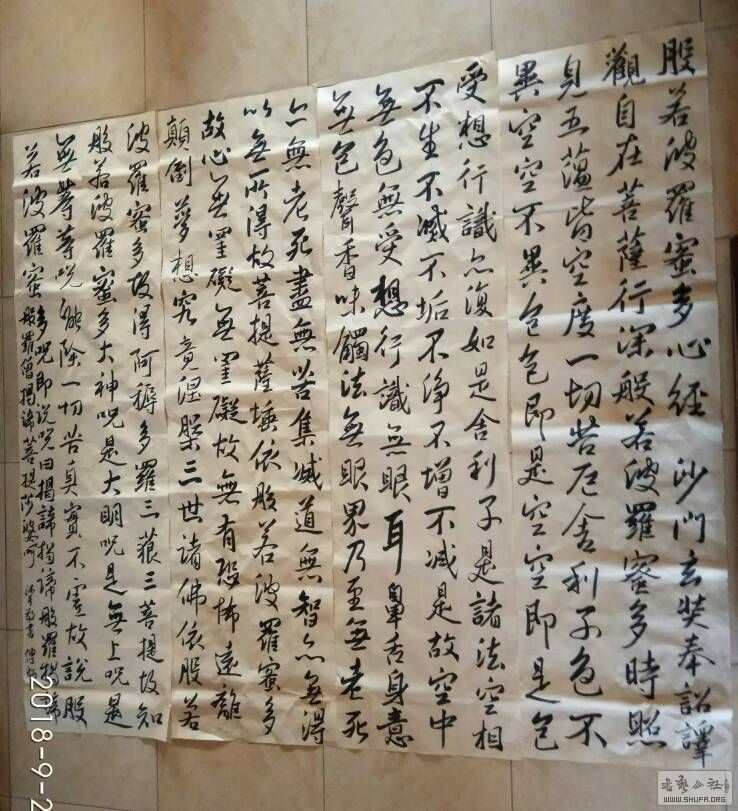 般若波羅蜜多心經 沙門玄奘奉詔譯
觀自在菩薩行深般若波羅蜜多時照
見五蘊皆空度一切苦厄舍利子色不
異空空不異色色即是空空即是色
受想行識亦復如是舍利子是諸法空相
不生不滅不垢不淨不增不減是故空中
無色無受想行識無眼耳鼻舌身意
無色聲香味觸法無眼界乃至無老死
亦無老死盡無苦集滅道無智亦無得
以無所得故菩提薩埵依般若波羅蜜多
故心無罣礙無罣礙故無有恐怖遠離
顛倒夢想究竟涅槃三世諸佛依般若
波羅蜜多故得阿耨多羅三藐三菩提故知
般若波羅蜜多大神呪是大明呪是無上呪是
無等等呪能除一切苦真實不虛故說般
若波羅蜜多呪即說呪曰揭諦揭諦般羅揭諦
般羅僧揭諦菩提莎婆呵
2018-9-2
书艺公社
WWW.SHUFA.ORG